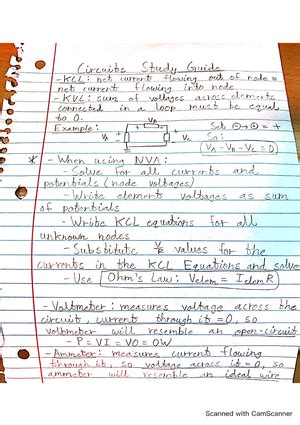 Circuits Study Guide
- KCL: net current flowing out of node =
net current flowing into node
- KVL: sum of voltages across elements
connected in a loop must be equal
to 0.
Example:
VB
VA
VC
Set
= +
So:
VA - VB - VC = 0
* - When using NVA:
- Solve for all currents and
potentials (node voltages)
- Write element voltages as sum
of potentials
- Write KCL equations for all
unknown nodes
- Substitute V/R values for the
currents in the KCL Equations and solve
- Use Ohm's Law: Velem = IelemR
- Voltmeter: measures voltage across the
circuit current through it = 0, so
voltmeter will resemble an open-circuit
- P = VI = V0 = 0W
- Ammeter: measures current flowing
through it, so voltage across it = 0, so
ammeter will resemble an ideal wire
Scanned with CamScanner